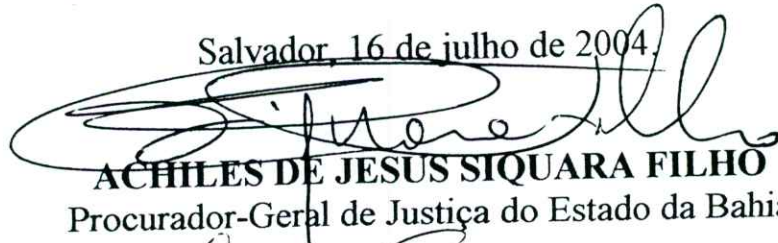 Salvador, 16 de julho de 2004.
ACHILES DE JESUS SIQUARA FILHO
Procurador-Geral de Justiça do Estado da Bahia